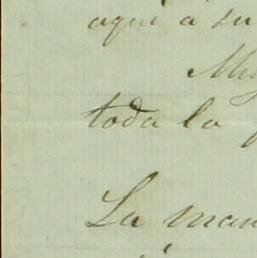 aqui á su
toda la
La man